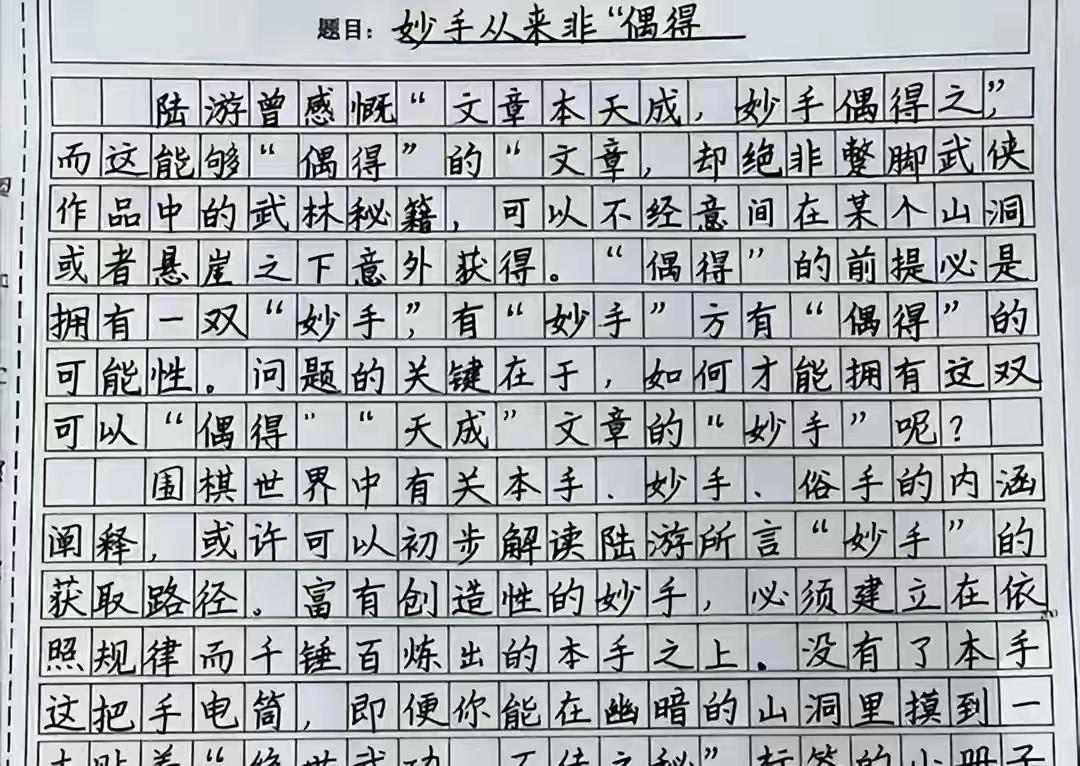 题目：妙手从来非“偶得
陆游曾感慨“文章本天成，妙手偶得之”，
而这能够“偶得”的“文章，却绝非蹩脚武侠
作品中的武林秘籍，可以不经意间在某个山洞
或者悬崖之下意外获得。“偶得”的前提必是
拥有一双“妙手”，有“妙手”方有“偶得”的
可能性。问题的关键在于，如何才能拥有这双
可以“偶得”“天成”文章的“妙手”呢？
围棋世界中有关本手、妙手、俗手的内涵
阐释，或许可以初步解读陆游所言“妙手”的
获取路径。富有创造性的妙手，必须建立在依
照规律而千锤百炼出的本手之上。没有了本手
这把手电筒，即便你能在幽暗的山洞里摸到一
本贴着“绝世武功，不传之秘”标签的小册子